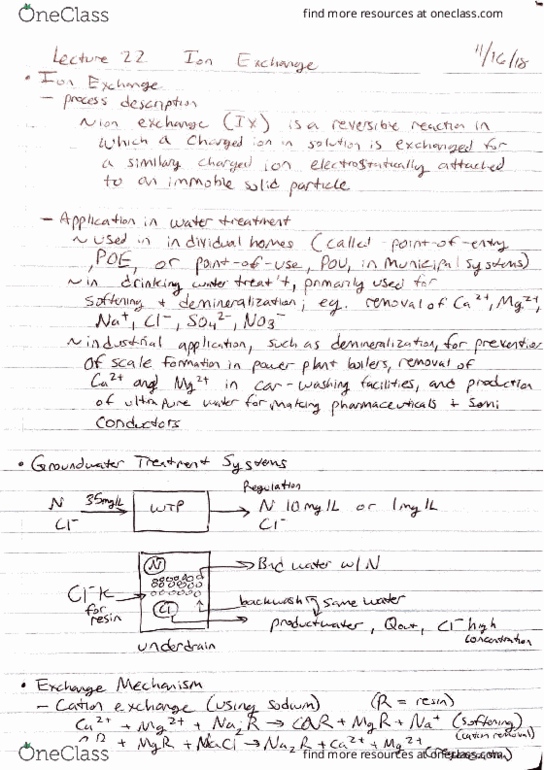 OneClass
find more resources at oneclass.com
Lecture 22 Ion Exchange 11/16/18
• Ion Exchange
- process description
~ ion exchange (IX) is a reversible reaction in
which a charged ion in solution is exchanged for
a similary charged ion electrostatically attached
to an immobile solid particle
- Application in water treatment
~ used in individual homes (called point-of-entry
, POE, or point-of-use, POU, in municipal systems)
~ in drinking water treat't, primarily used for
softening + demineralization; eg. removal of Ca²⁺, Mg²⁺,
Na⁺, Cl⁻, SO₄²⁻, NO₃⁻
~ industrial application, such as demineralization, for prevention
of scale formation in power plant boilers, removal of
Ca²⁺ and Mg²⁺ in car-washing facilities, and production
of ultrapure water for making pharmaceuticals + semi
conductors
• Groundwater Treatment Systems
Regulation
N 35mg/L → WTP → N 10mg/L or 1mg/L
Cl⁻ Cl⁻
N → Bad water w/ N
Cl⁻
for
resin
Cl
backwash same water
productwater, Qout, Cl⁻ high
concentration
underdrain
• Exchange Mechanism
- Cation exchange (using sodium) (R = resin)
Ca²⁺ + Mg²⁺ + Na₂R → CaR + MgR + Na⁺ (softening)
(cation removal)
+ MgR + NaCl → Na₂R + Ca²⁺ + Mg²⁺
OneClass
find more resources at oneclass.com